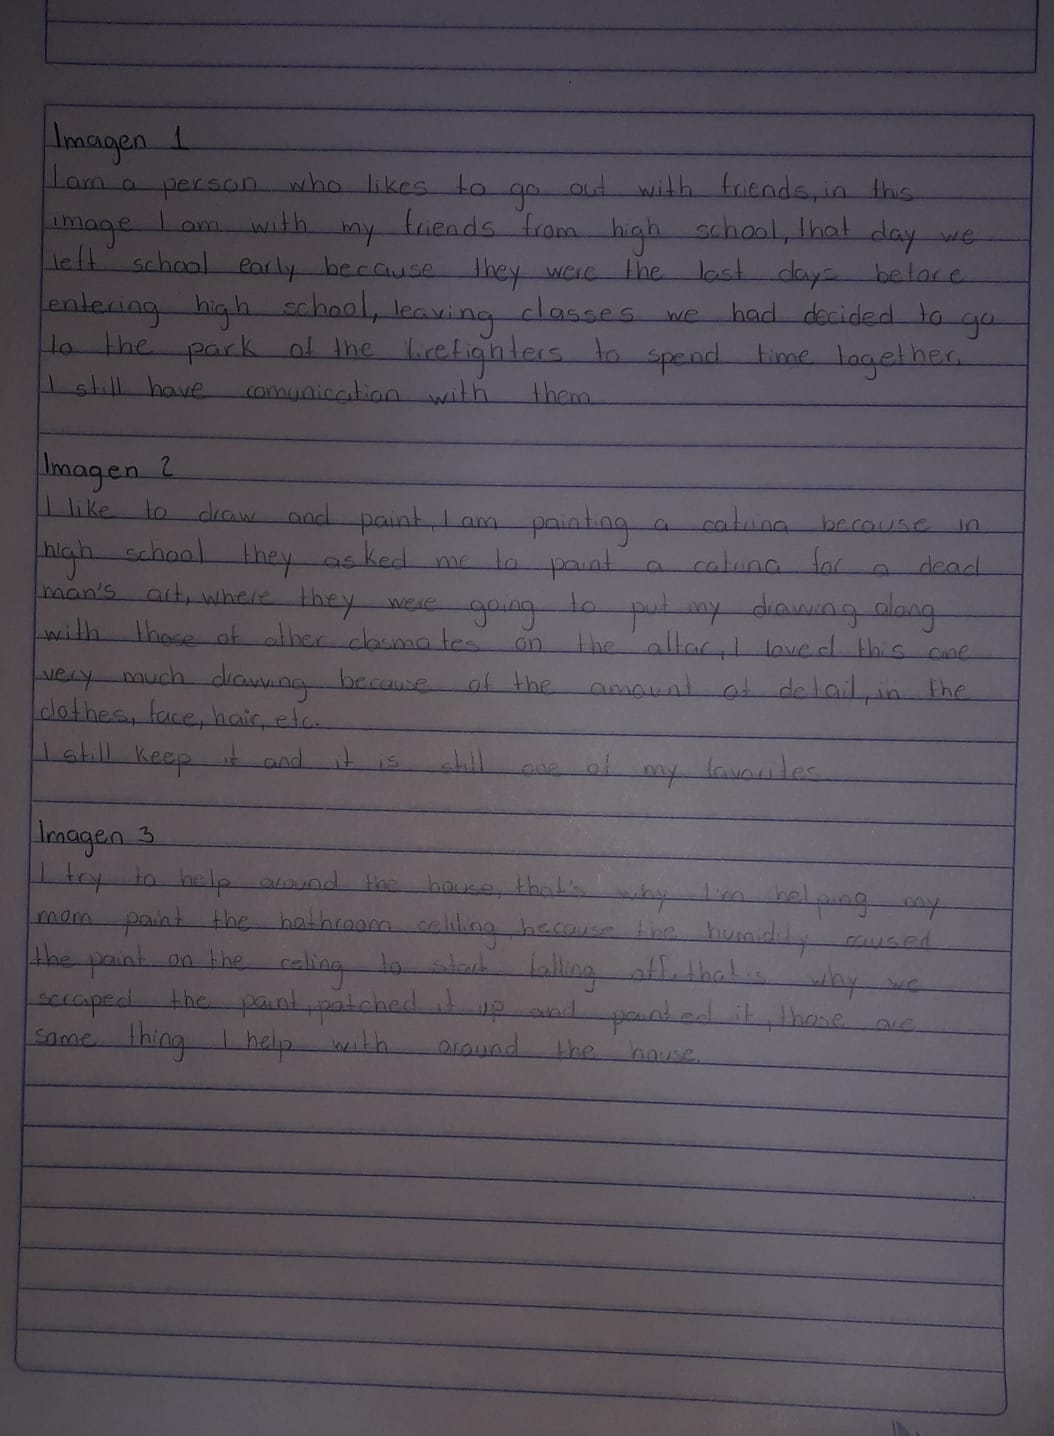 Imagen 1
I am a person who likes to go out with friends, in this
image I am with my friends from high school, that day we
left school early because they were the last days before
entering high school, leaving classes we had decided to go
to the park of the firefighters to spend time together.
I still have comunication with them
Imagen 2
I like to draw and paint, I am painting a catrina because in
high school they asked me to paint a catrina for a dead
man's art, where they were going to put my drawing along
with those of other clasmates on the altar, I loved this one
very much drawing because of the amount of detail, in the
clothes, face, hair, etc.
I still keep it and it is still one of my favorites.
Imagen 3
I try to help around the house, that's why I'm helping my
mom paint the bathroom celiling because the humidity caused
the paint on the celing to start falling off, that's why we
scraped the paint, patched it up and painted it, those are
some thing I help with around the house.